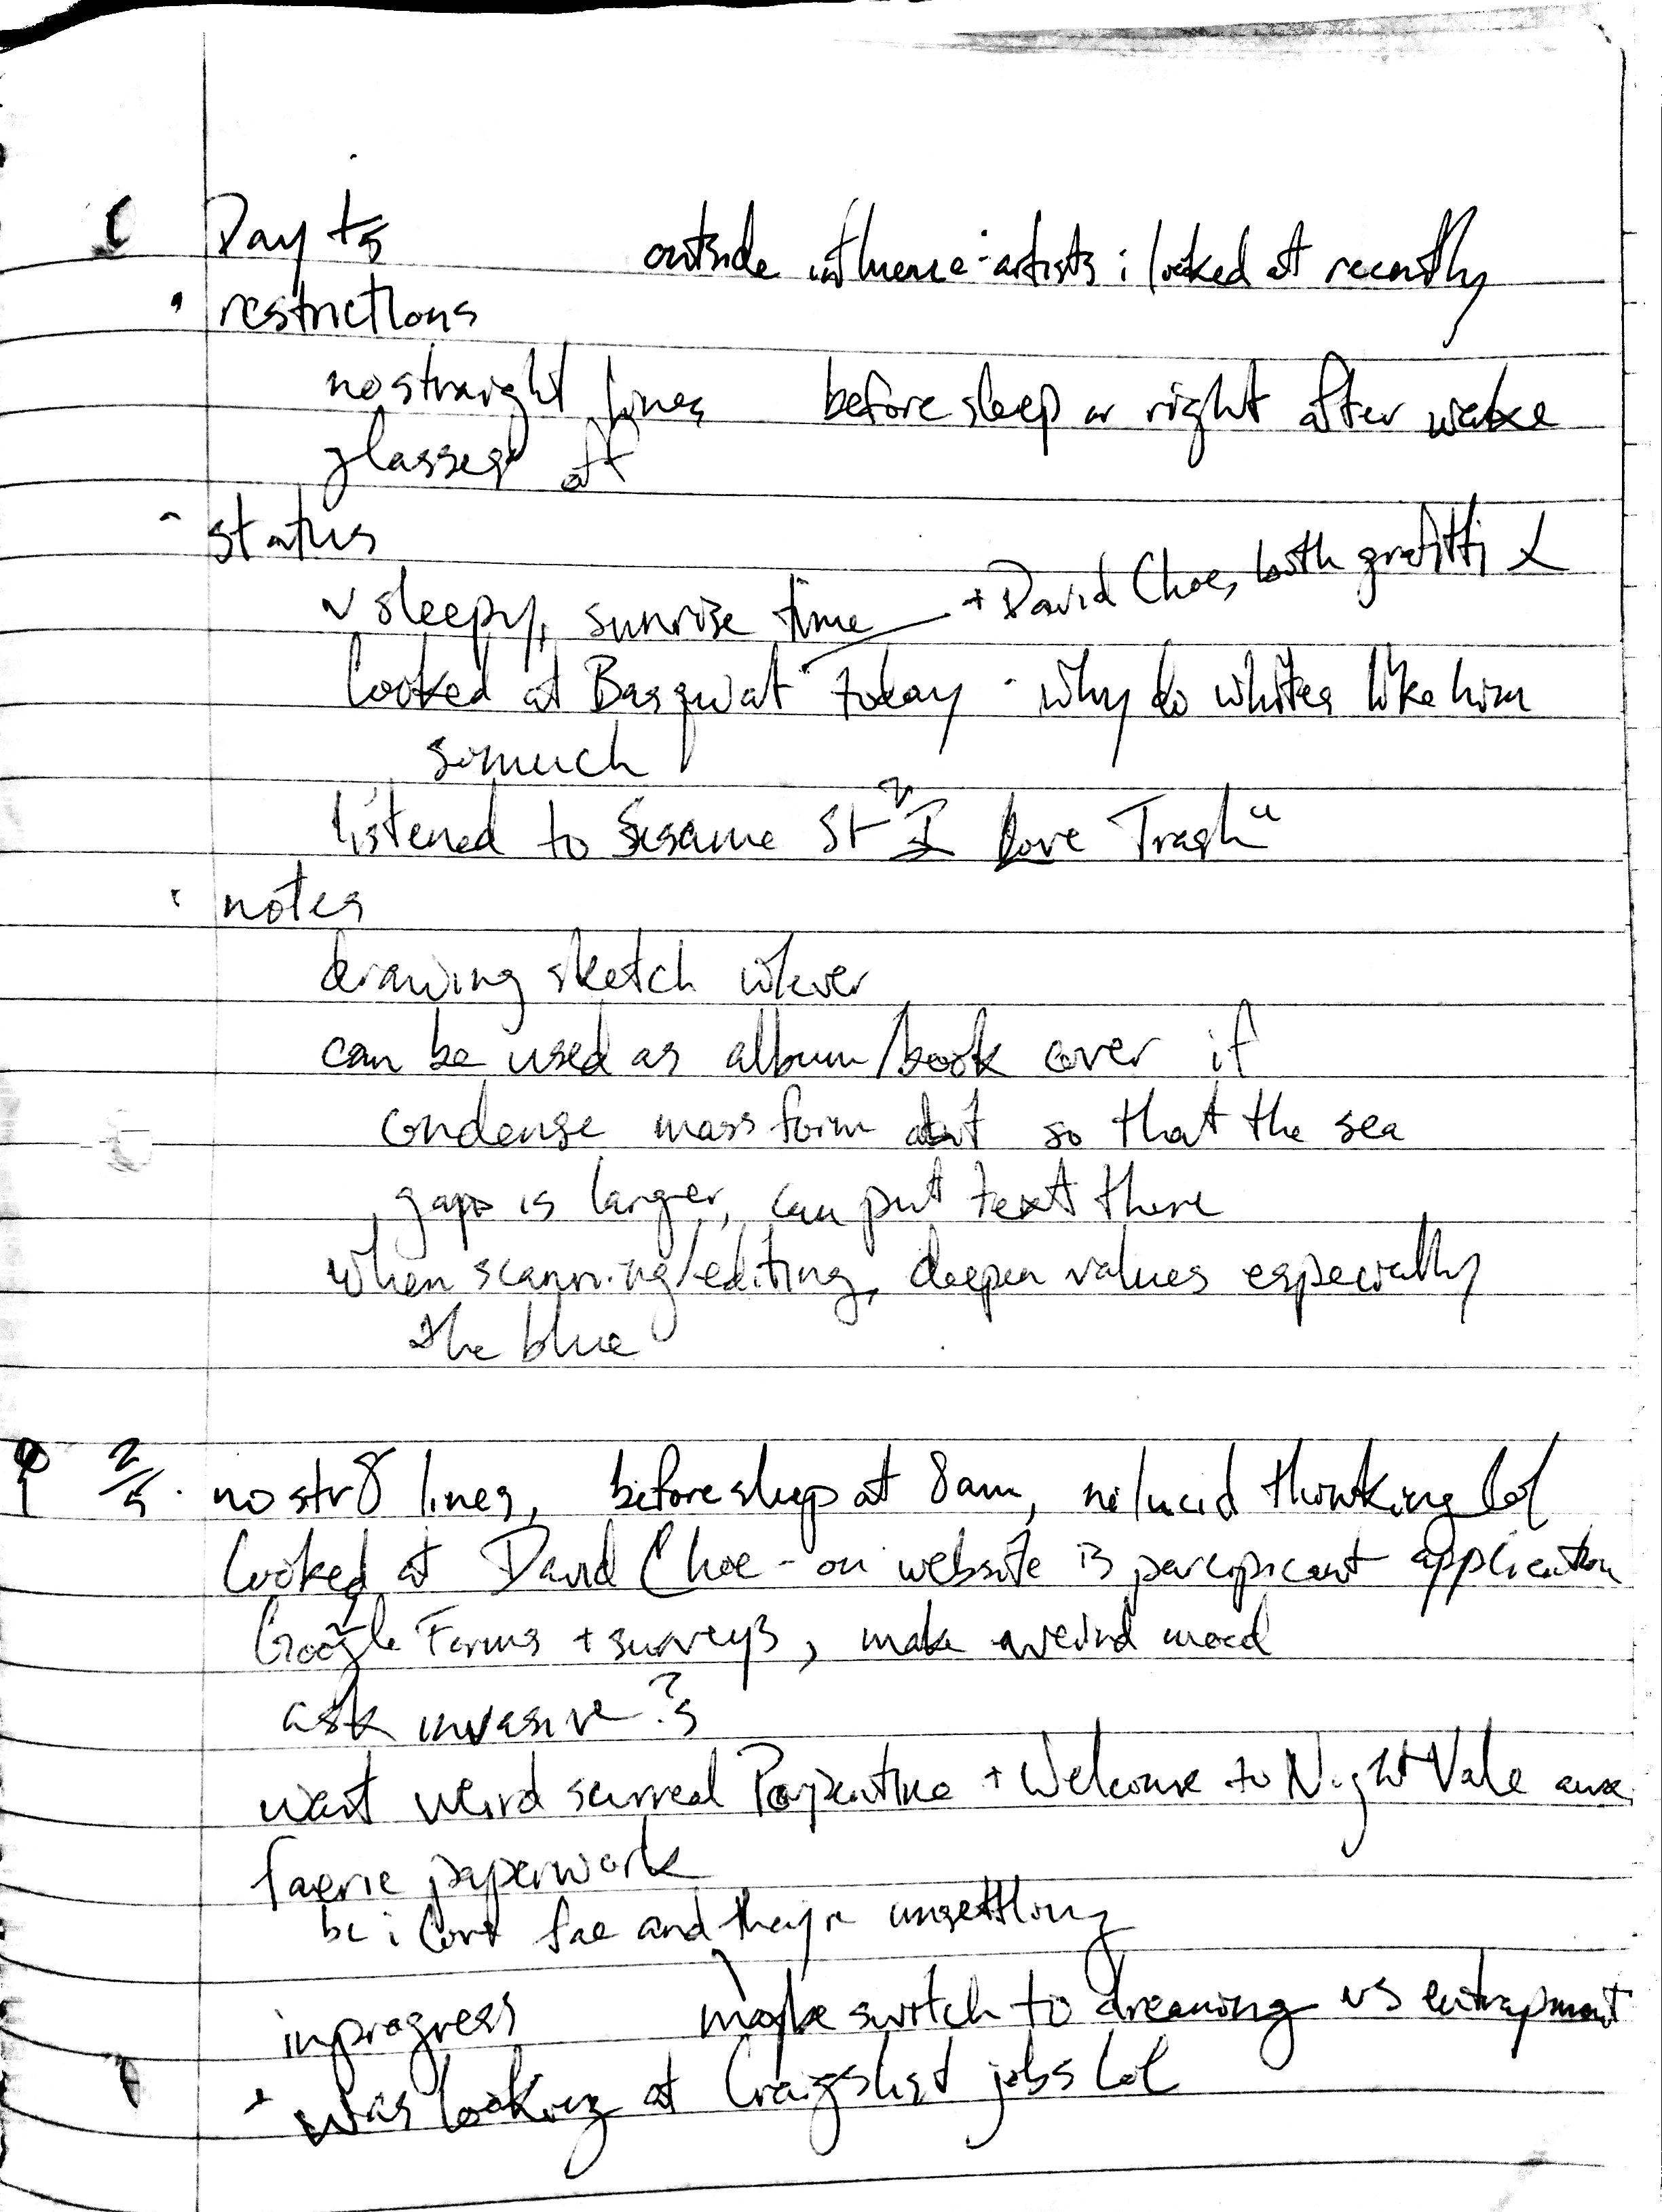 Day 1/5 outside influence - artists i looked at recently
• restrictions
no straight lines before sleep or right after wake
glasses off
- status
v sleepy, sunrise time + David Choe, both grafitti &
looked at Basqwat today - why do whites like him
so much
listened to Sesame St "I Love Trash"
• notes
drawing sketch wkever
can be used as album/book cover if
condense mass form so that the sea
gaps is larger, can put text there
when scanning/editing, deepen values especially
the blue
2/5. no str8 lines, before sleep at 8am, no lucid thinking lol
looked at David Choe - on website is application
Google Forms + surveys, make a weird mood
ask invasive ?s
want weird surreal Porpentine + Welcome to Night Vale
faerie paperwork
bc i love fae and they're unsettling
in progress maybe switch to dreaming vs entrapment
was looking at Craigslist jobs lol